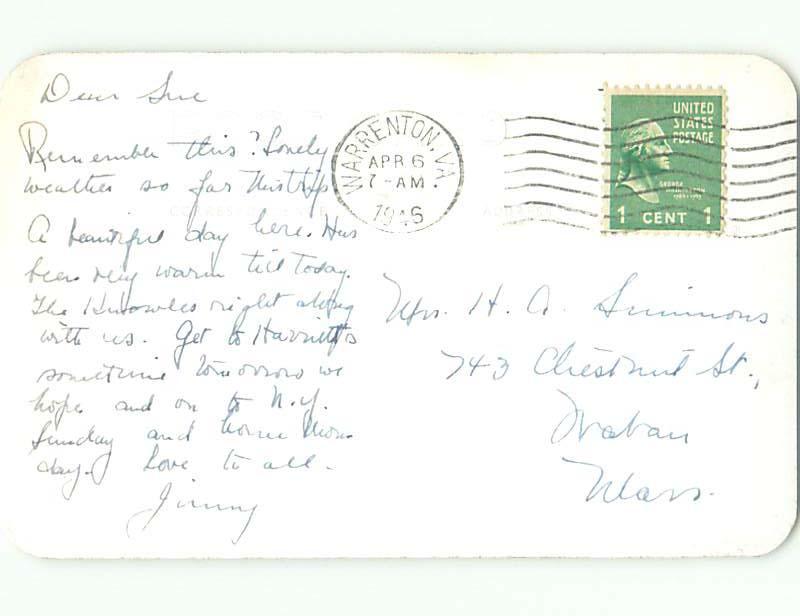 Dear Sue
Remember this? Lonely
weather so far this trip
A beautiful day here. Has
been very warm till today.
The Knowles right along
with us. Get to Harriett's
sometime tomorrow we
hope and on to N.Y.
Sunday and home Mon-
day. Love to all.
Jimmy
WARRENTON, VA.
APR 6
7-AM.
1946
UNITED
STATES
POSTAGE
GEORGE
WASHINGTON
1 CENT 1
CORRESPONDENCE
ADDRESS
Mrs. H. A. Simmons
743 Chestnut St.,
Waban
Mass.